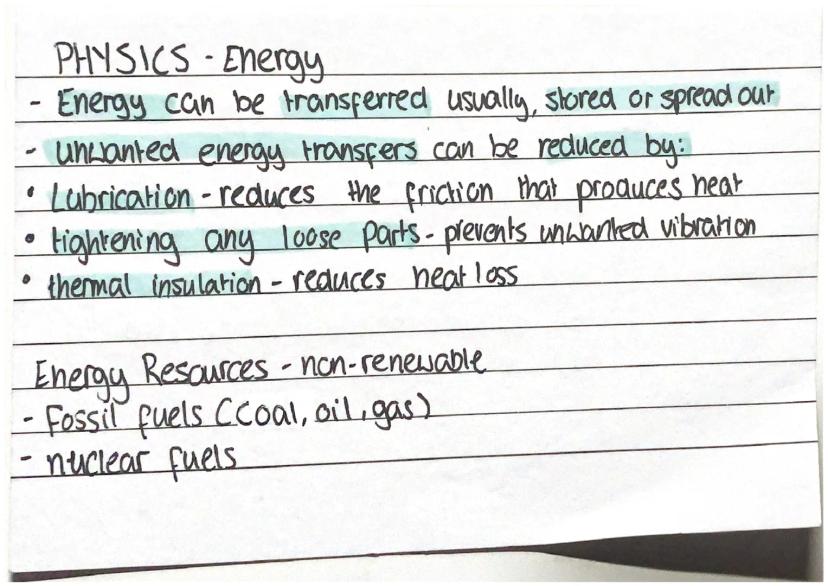 PHYSICS - Energy
- Energy can be transferred usually, stored or spread out
- unwanted energy transfers can be reduced by:
• Lubrication - reduces the friction that produces heat
• tightening any loose parts - prevents unwanted vibration
• thermal insulation - reduces heat loss
Energy Resources - non-renewable
- Fossil fuels (coal, oil, gas)
- nuclear fuels